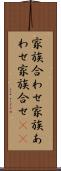 家族合わせ家族あ
わせ家族合せ《《